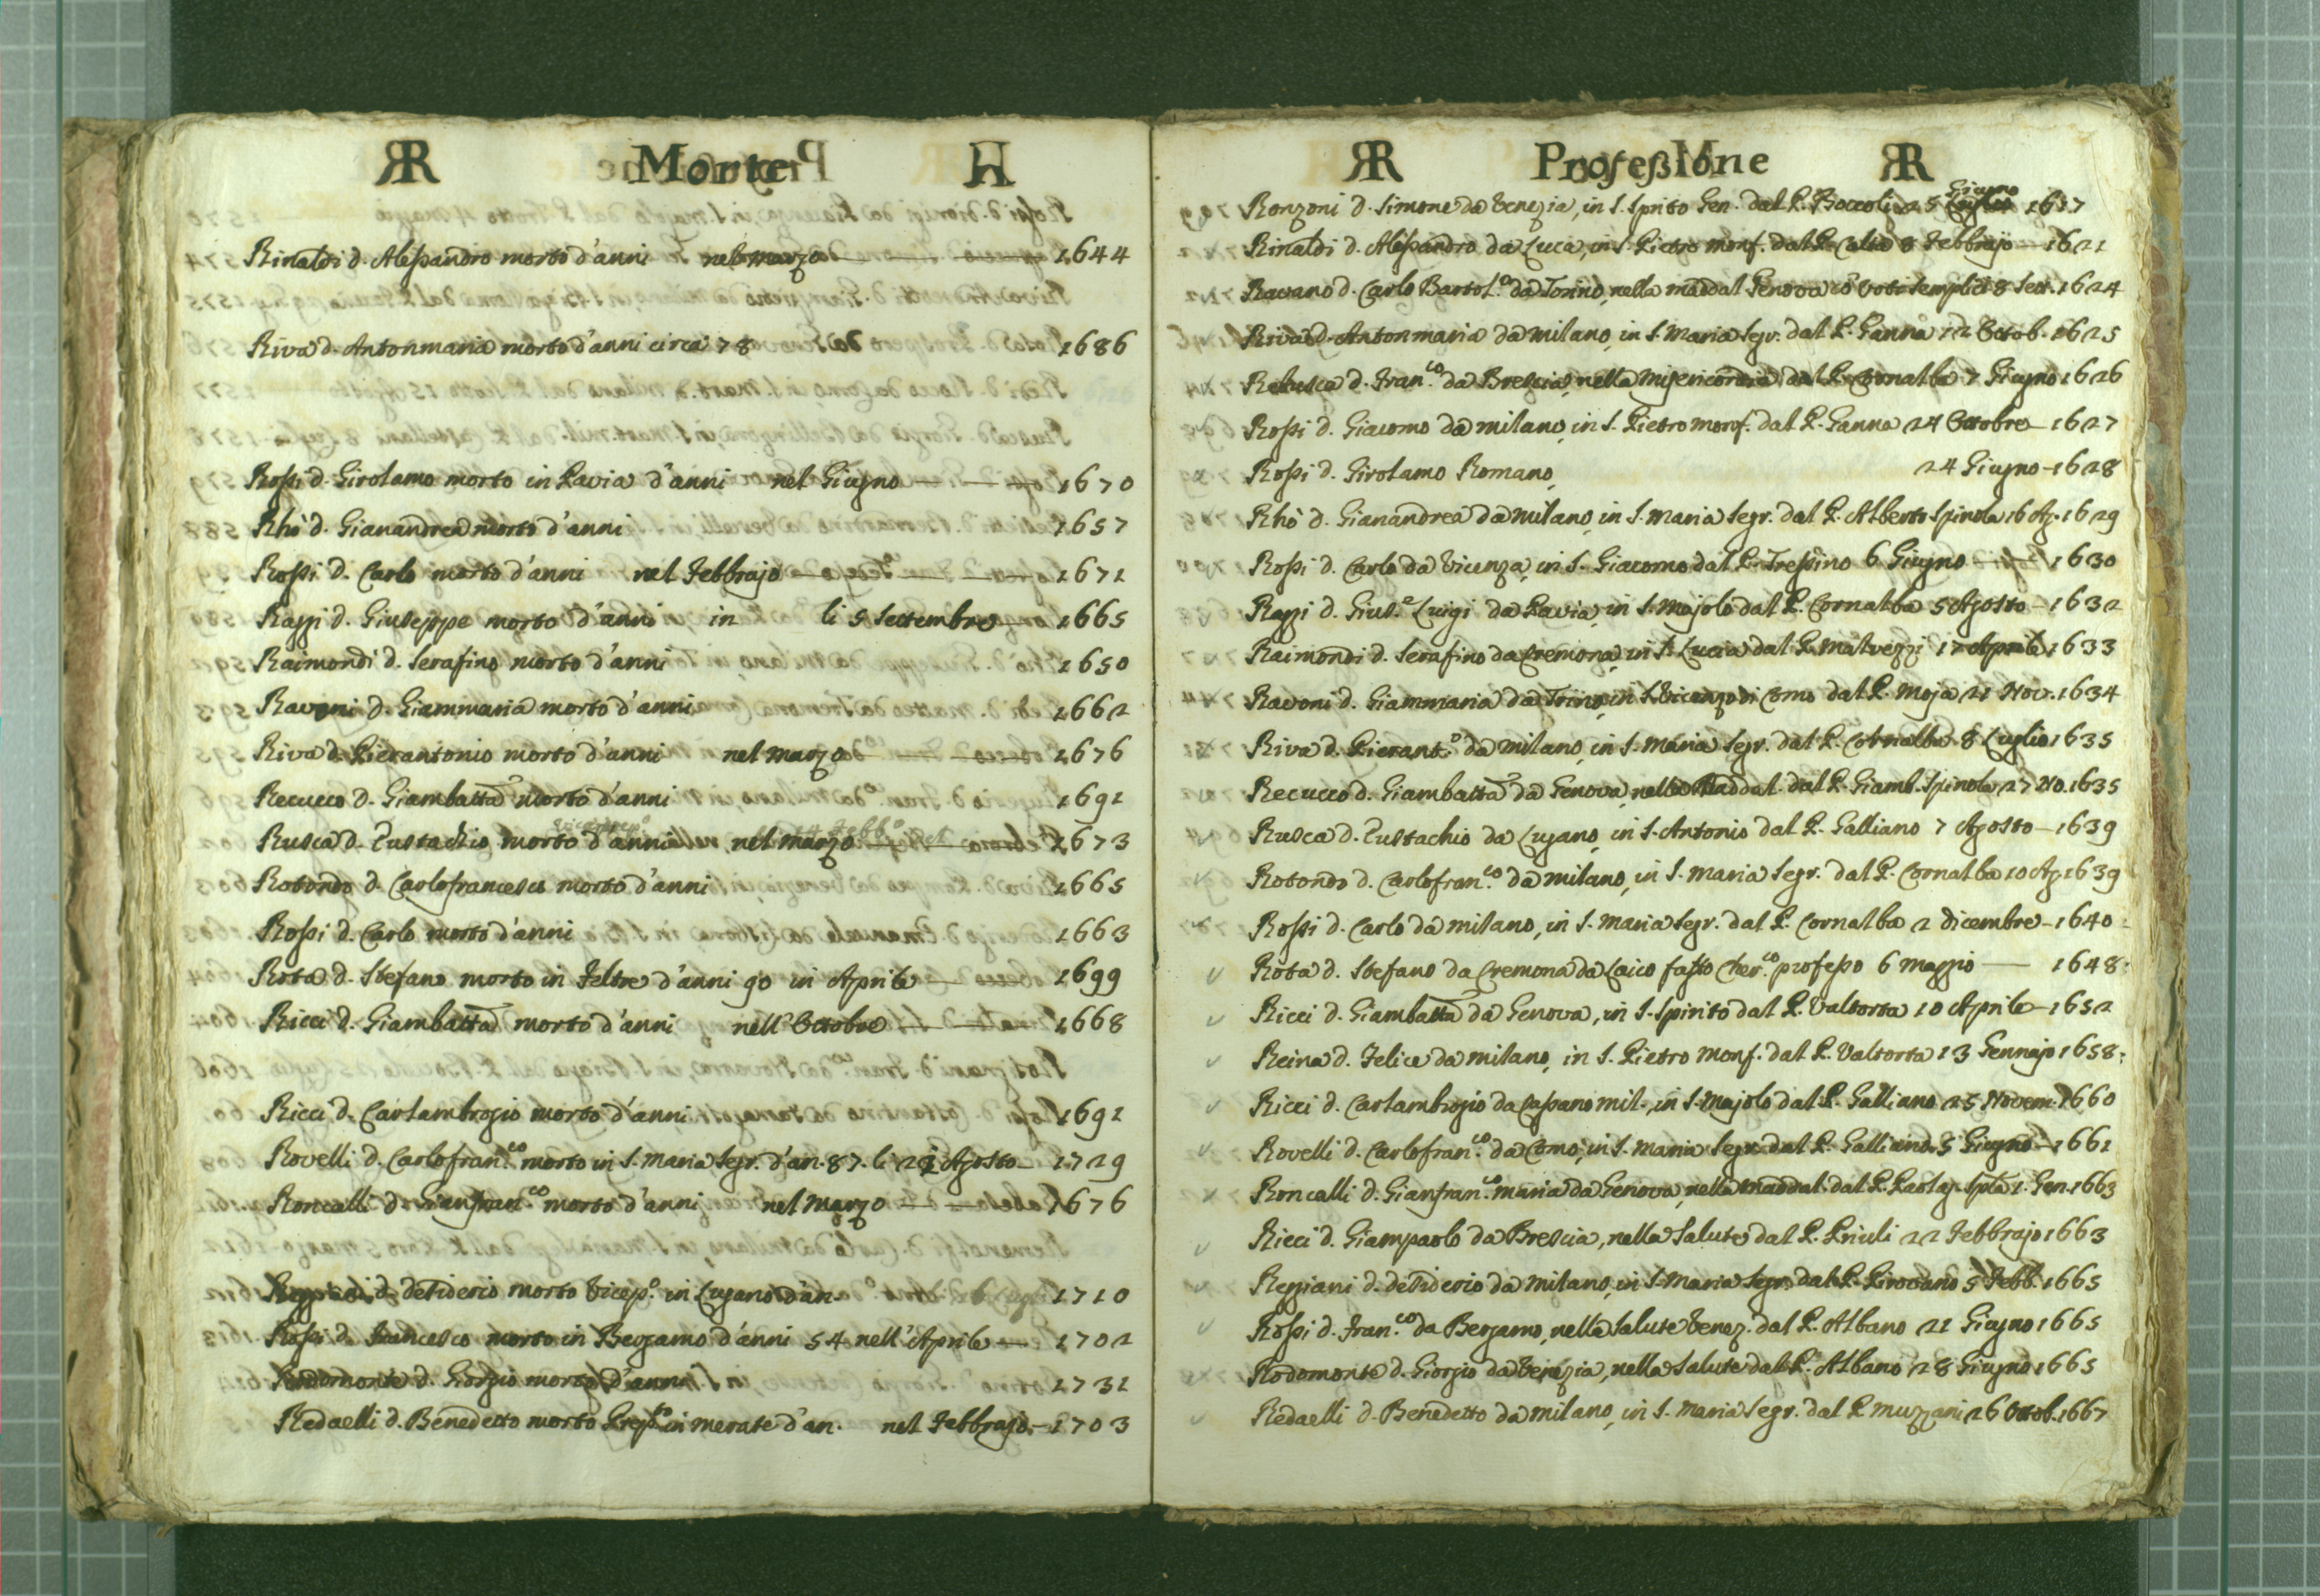 R Morte R
Rinaldi d. Alessandro morto d'anni nel marzo 1644
Riva d. Antonmaria morto d'anni circa 78 1686
Rossi d. Girolamo morto in Pavia d'anni nel Giugno 1670
Rhò d. Gianandrea morto d'anni 1657
Rossi d. Carlo morto d'anni nel Febbrajo 1671
Razzi d. Giuseppe morto d'anni in li 5 Settembre 1665
Raimondi d. Serafino morto d'anni 1650
Ravoni d. Giammaria morto d'anni 1662
Riva d. Pierantonio morto d'anni nel marzo 1676
Recucco d. Giambatta morto d'anni 1691
Rusca d. Eustachio morto d'anni nel marzo 1673
Rotondo d. Carlofrancesco morto d'anni 1665
Rossi d. Carlo morto d'anni 1663
Rota d. Stefano morto in Feltre d'anni 90 in Aprile 1699
Ricci d. Giambatta morto d'anni nell'Ottobre 1668
Ricci d. Carlambrogio morto d'anni 1691
Rovelli d. Carlofran.co morto in S. Maria Segr. d'an. 87. li Agosto 1729
Roncalli d. Gianfran.co morto d'anni nel Marzo 1676
d. Desiderio morto Vicep.o in Lugano d'an. 1710
Rossi d. Francesco morto in Bergamo d'anni 54 nell'Aprile 1702
Rodomonte d. Giorgio morto d'anni 1731
Redaelli d. Benedetto morto in merate d'an. nel Febbrajo 1703
R Professione R
Giugno
Ronzoni d. Simone da Venezia, in S. Spirito Gen. dal P. Boccoli 25 1617
Rinaldi d. Alessandro da Luca, in S. Pietro monf. dal P. Calta 8 Febbrajo 1621
Ravano d. Carlo Bartol.o da Torino, nella maddal Genova cō voti semplici 8 Sett. 1624
Riva d. Antonmaria da milano, in S. Maria Segr. dal P. Ganna 12 Ottob. 1625
Rebusca d. Fran.co da Brescia, nella Misericordia dal P. Cornalba 7 Giugno 1626
Rossi d. Giacomo da milano, in S. Pietro monf. dal P. Ganna 24 Ottobre 1627
Rossi d. Girolamo Romano, 24 Giugno 1628
Rhò d. Gianandrea da milano, in S. Maria Segr. dal P. Alberto Spinola 16 Ag. 1629
Rossi d. Carlo da Vicenza, in S. Giacomo dal P. Tressino 6 Giugno 1630
Razzi d. Gius.e Luigi da Pavia, in S. Majolo dal P. Cornalba 5 Agosto 1632
Raimondi d. Serafino da Cremona, in S. Lucia dal P. Malvezzi 17 Aprile 1633
Ravoni d. Giammaria da Torino, in S. Vicenzo di Como dal P. Moja 21 Nov. 1634
Riva d. Pierant.o da milano, in S. Maria Segr. dal P. Cornalba 8 Luglio 1635
Recucco d. Giambatta da Genova, nella Maddal. dal P. Giamb. Spinola 27 No. 1635
Rusca d. Eustachio da Lugano, in S. Antonio dal P. Galliano 7 Agosto 1639
Rotondo d. Carlofran.co da milano, in S. Maria Segr. dal P. Cornalba 10 Ag. 1639
Rossi d. Carlo da milano, in S. Maria Segr. dal P. Cornalba 2 dicembre 1640
Rota d. Stefano da Cremona da Laico fatto Cher.co professo 6 maggio 1648
Ricci d. Giambatta da Genova, in S. Spirito dal P. Valtorta 10 Aprile 1652
Reina d. Felice da milano, in S. Pietro Monf. dal P. Valtorta 13 Gennajo 1658
Ricci d. Carlambrogio da Casano mil., in S. Majolo dal P. Galliano 25 Novem. 1660
Rovelli d. Carlofran.co da Como, in S. Maria Segr. dal P. Galliano 5 Giugno 1661
Roncalli d. Gianfran.co maria da Genova, nella maddal. dal P. 1. Gen. 1663
Ricci d. Giampaolo da Brescia, nella Salute dal P. Priuli 22 Febbrajo 1663
Reggiani d. Desiderio da milano, in S. Maria Segr. dal P. Pirovano 5 Febb. 1665
Rossi d. Fran.co da Bergamo, nella Salute Venez. dal P. Albano 21 Giugno 1665
Rodomonte d. Giorgio da Venezia, nella Salute dal P. Albano 28 Giugno 1665
Redaelli d. Benedetto da milano, in S. Maria Segr. dal P. Muzzani 26 Ottob. 1667